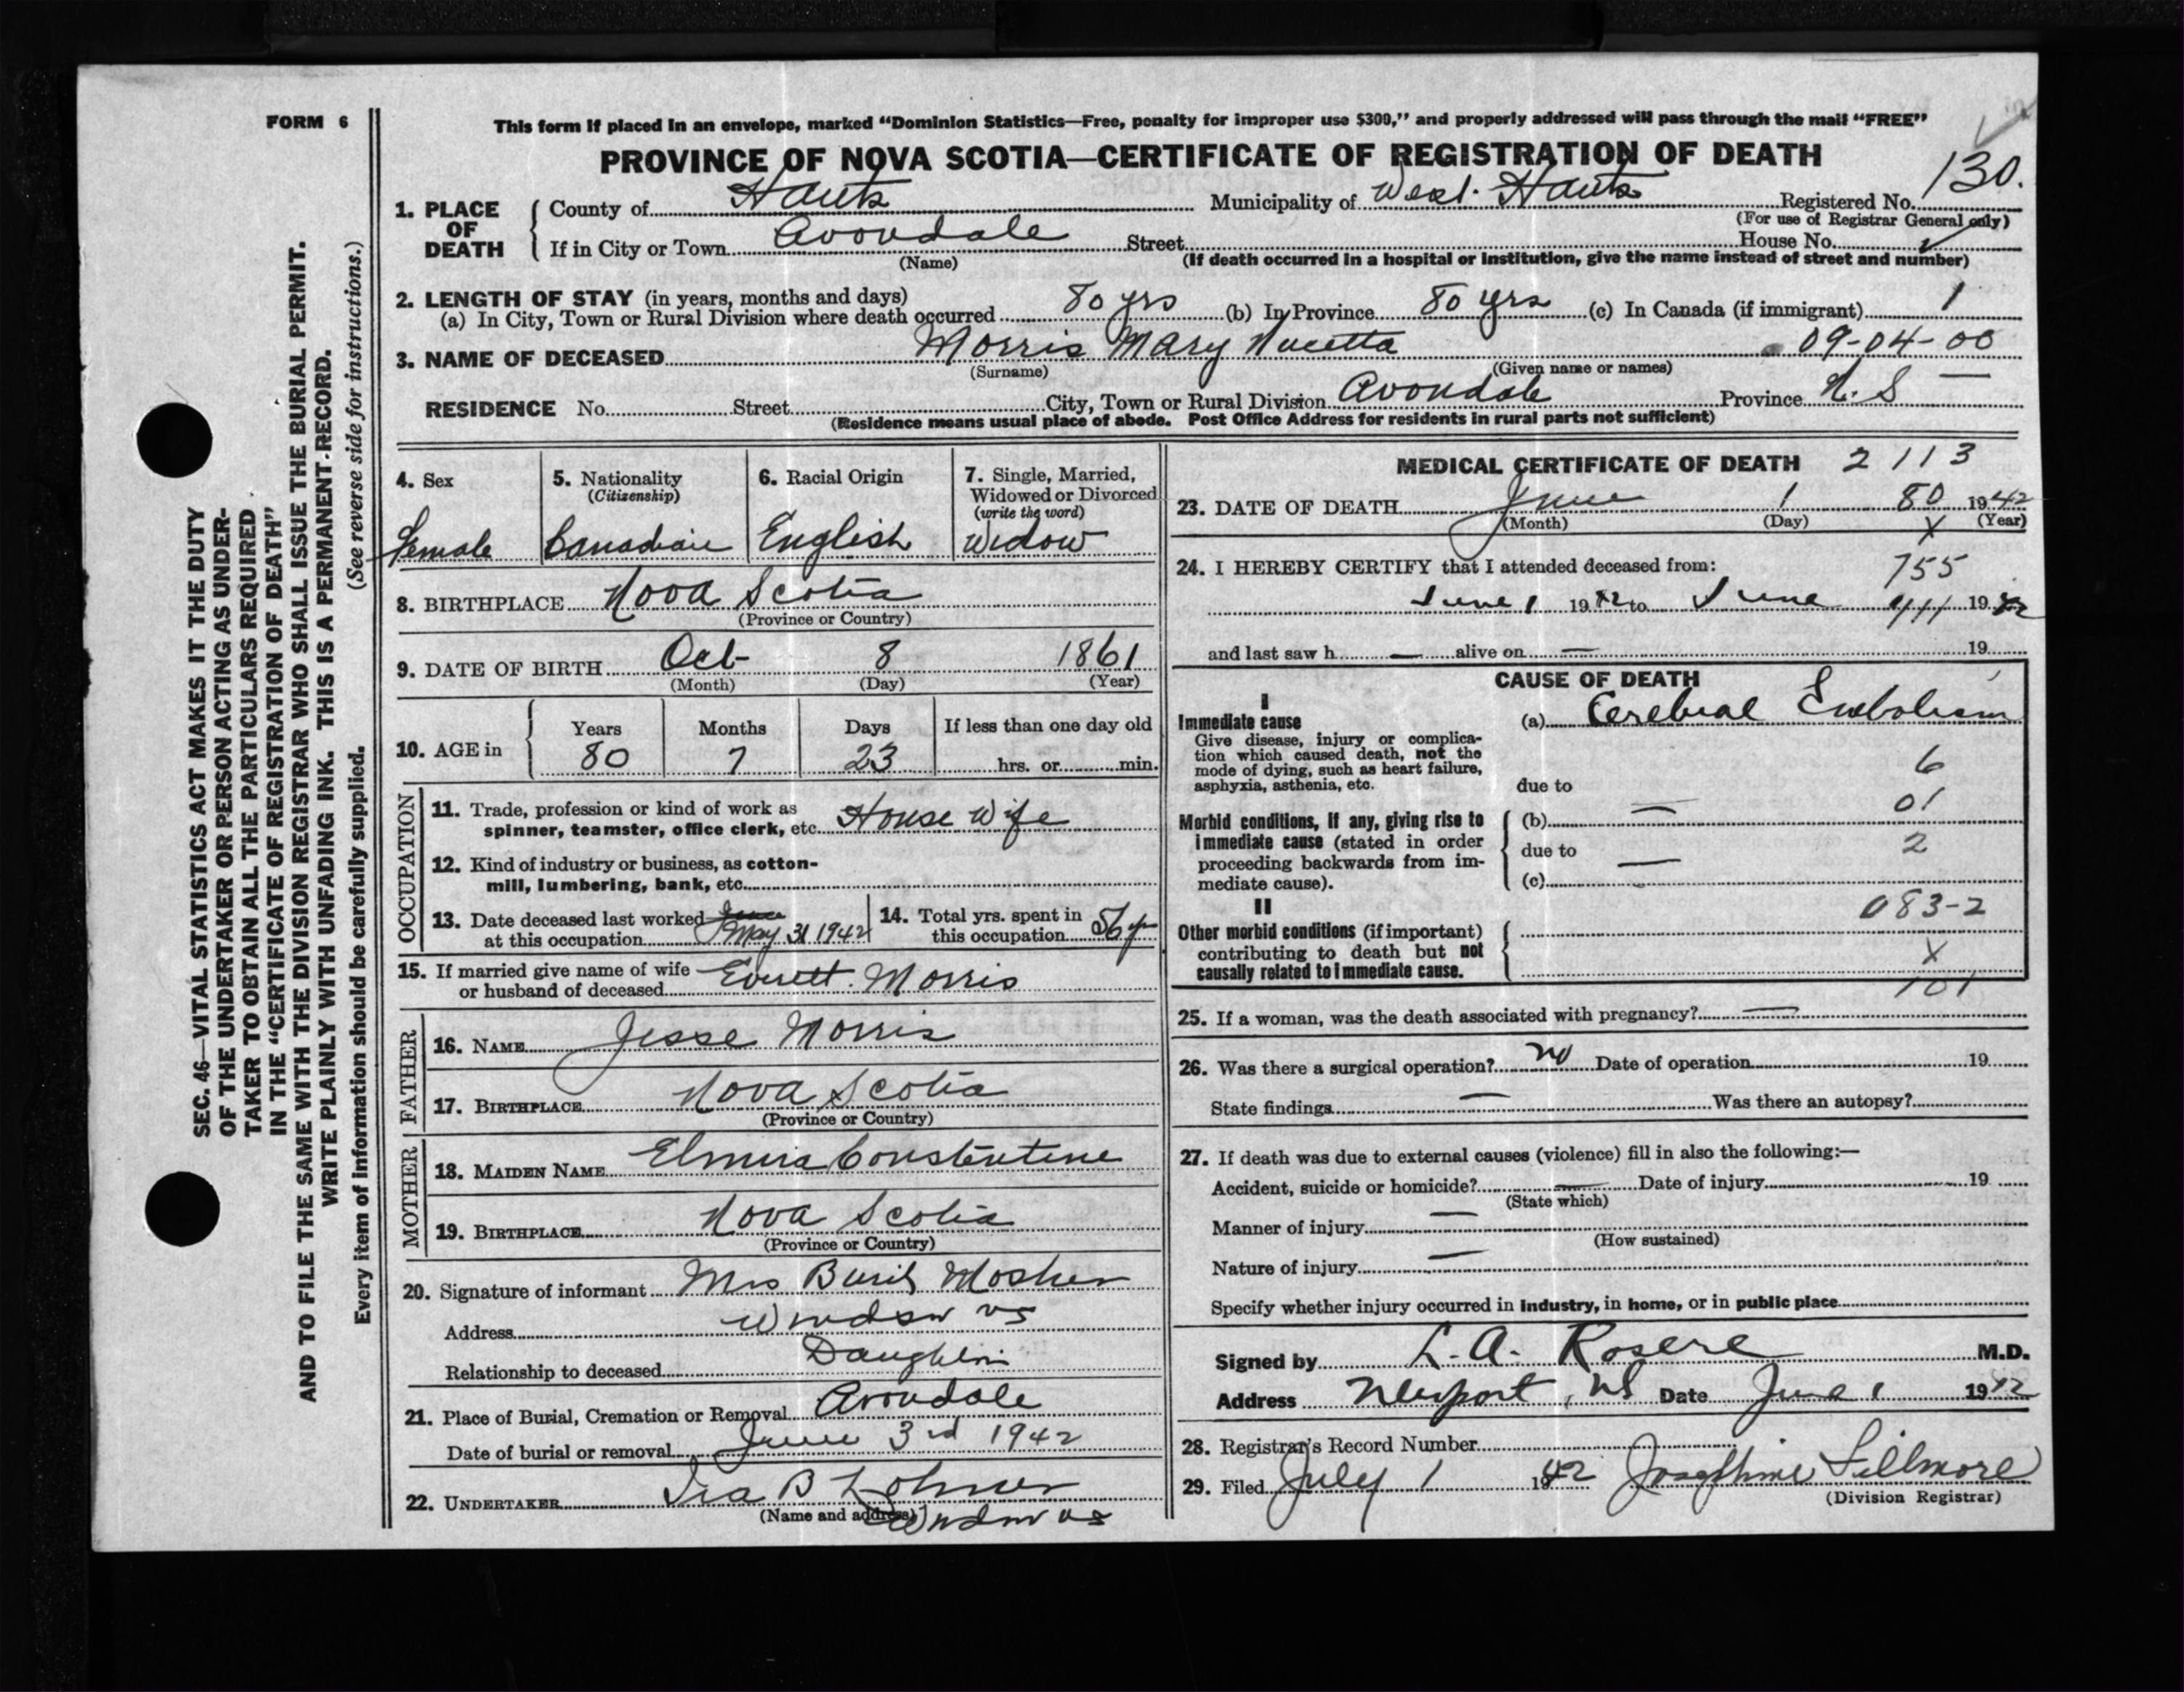 FORM 6
This form if placed in an envelope, marked “Dominion Statistics—Free, penalty for improper use $300,” and properly addressed will pass through the mail “FREE”
PROVINCE OF NOVA SCOTIA—CERTIFICATE OF REGISTRATION OF DEATH
130.
1. PLACE OF DEATH { County of Hants Municipality of West Hants Registered No.
(For use of Registrar General only)
If in City or Town Avondale Street House No.
(Name) (If death occurred in a hospital or institution, give the name instead of street and number)
2. LENGTH OF STAY (in years, months and days)
(a) In City, Town or Rural Division where death occurred 80 yrs (b) In Province 80 yrs (c) In Canada (if immigrant) 1
3. NAME OF DECEASED Morris Mary 09-04-00
(Surname) (Given name or names)
RESIDENCE No. Street City, Town or Rural Division Avondale Province N.S
(Residence means usual place of abode. Post Office Address for residents in rural parts not sufficient)
4. Sex
Female
5. Nationality
(Citizenship)
Canadian
6. Racial Origin
English
7. Single, Married,
Widowed or Divorced
(write the word)
Widow
8. BIRTHPLACE Nova Scotia
(Province or Country)
9. DATE OF BIRTH Oct 8 1861
(Month) (Day) (Year)
10. AGE in
Years Months Days If less than one day old
80 7 23 hrs. or min.
OCCUPATION
11. Trade, profession or kind of work as
spinner, teamster, office clerk, etc. House Wife
12. Kind of industry or business, as cotton-
mill, lumbering, bank, etc.
13. Date deceased last worked
at this occupation May 31 1942
14. Total yrs. spent in
this occupation 56 yr
15. If married give name of wife
or husband of deceased Everett Morris
FATHER
16. NAME Jesse Morris
17. BIRTHPLACE Nova Scotia
(Province or Country)
MOTHER
18. MAIDEN NAME Elmira Constentine
19. BIRTHPLACE Nova Scotia
(Province or Country)
20. Signature of informant Mrs Mosher
Address Windsor NS
Relationship to deceased Daughter
21. Place of Burial, Cremation or Removal Avondale
Date of burial or removal June 3rd 1942
22. UNDERTAKER Ira B
(Name and address) Windsor NS
MEDICAL CERTIFICATE OF DEATH 2113
23. DATE OF DEATH June 1 80 1942
(Month) (Day) X (Year)
24. I HEREBY CERTIFY that I attended deceased from: 755
June 1 1942 to June 1942
and last saw h — alive on — 19
CAUSE OF DEATH
I
Immediate cause (a) Cerebral Embolism
Give disease, injury or complica-
tion which caused death, not the
mode of dying, such as heart failure,
asphyxia, asthenia, etc.
6
due to
01
Morbid conditions, if any, giving rise to
immediate cause (stated in order
proceeding backwards from im-
mediate cause).
(b) —
due to 2
(c) —
II
083-2
Other morbid conditions (if important)
contributing to death but not
causally related to immediate cause.
X
101
25. If a woman, was the death associated with pregnancy? —
26. Was there a surgical operation? no Date of operation 19
State findings — Was there an autopsy?
27. If death was due to external causes (violence) fill in also the following:—
Accident, suicide or homicide? — Date of injury 19
(State which)
Manner of injury —
(How sustained)
Nature of injury —
Specify whether injury occurred in industry, in home, or in public place
Signed by L. A. Rosere M.D.
Address Newport, NS Date June 1 1942
28. Registrar's Record Number
29. Filed July 1 1942 Josephine Fillmore
(Division Registrar)
SEC. 46—VITAL STATISTICS ACT MAKES IT THE DUTY
OF THE UNDERTAKER OR PERSON ACTING AS UNDER-
TAKER TO OBTAIN ALL THE PARTICULARS REQUIRED
IN THE “CERTIFICATE OF REGISTRATION OF DEATH”
AND TO FILE THE SAME WITH THE DIVISION REGISTRAR WHO SHALL ISSUE THE BURIAL PERMIT.
WRITE PLAINLY WITH UNFADING INK. THIS IS A PERMANENT RECORD.
(See reverse side for instructions.)
Every item of information should be carefully supplied.